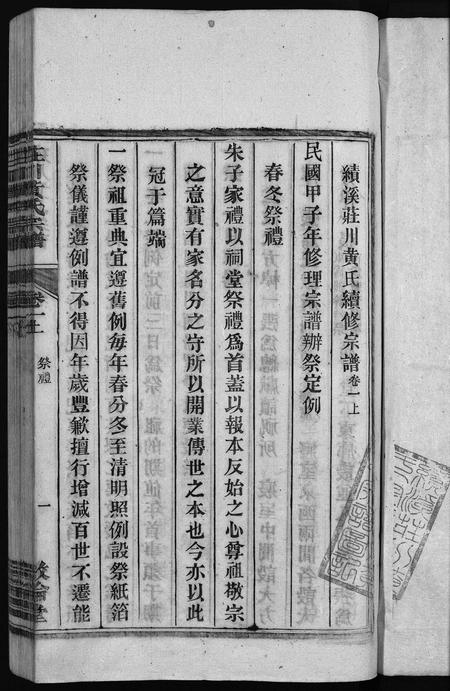 績溪莊川黃氏續修宗譜 卷一上
民國甲子年修理宗譜辦祭定例
春冬祭禮
朱子家禮以祠堂祭禮爲首蓋以報本反始之心尊祖敬宗
之意實有家名分之守所以開業傳世之本也今亦以此
冠于篇端
一祭祖重典宜遵舊例每年春分冬至清明照例設祭紙箔
祭儀謹遵例譜不得因年歲豐歉擅行增減百世不遷能
卷一上
祭禮
一
敘倫堂